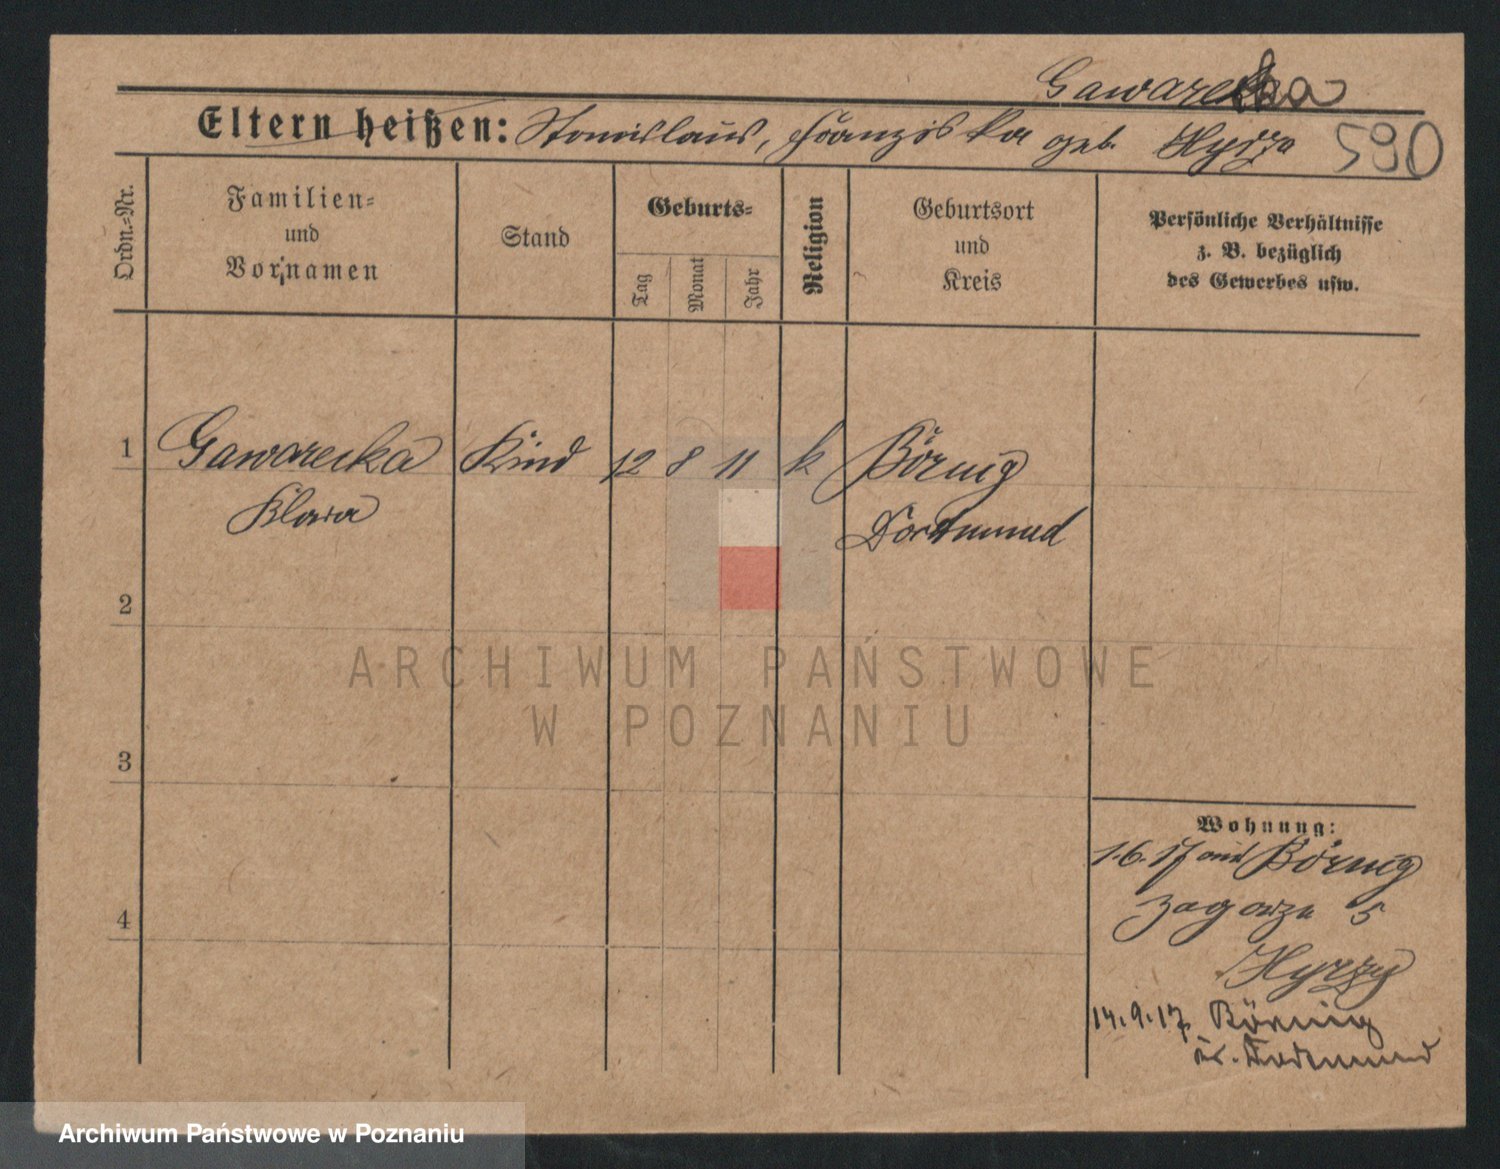 Gawarecka
Eltern heißen: Stanislaus, Franziska geb. Hyrza
590
Ordn.-Nr.
Familien-
und
Vornamen
Stand
Geburts-
Tag
Monat
Jahr
Religion
Geburtsort
und
Kreis
Persönliche Verhältnisse
z. B. bezüglich
des Gewerbes usw.
1 Gawarecka Kind 12 8 11 k Börnig
Klara Dortmund
2
3
4
Wohnung:
1.6.17 aus Börnig
Zagorze 5
Hyrzy
14.9.17 Börnig
Kr. Dortmund
ARCHIWUM PAŃSTWOWE
W POZNANIU
Archiwum Państwowe w Poznaniu